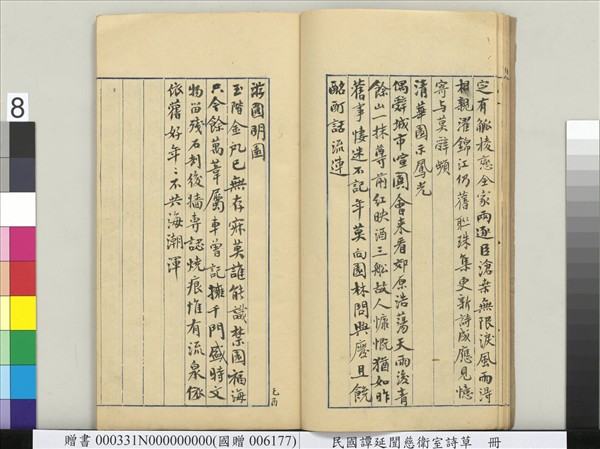 定有觚棱戀全家兩逐臣滄桑無限淚風雨得
相親濯錦江仍舊聯珠集更新詩成應見憶
寄与莫辭頻
清華園示鳳光
偶辭城市喧闐會来看郊原浩蕩天雨後青
餘山一抹尊前紅映酒三船故人慷慨猶如昨
舊事悽迷不記年莫向園林問興廢且饒
酩酊話流連
游圓明園
玉階金凡已無存麻英誰能識禁園福海
只今餘萬葦屬車曾記擁千門盛時文
物留殘石刧後牆専認燒痕惟有流泉依
依舊好年〻不共海潮渾
8
贈書 000331N000000000(國贈 006177)
民國譚延闓慈衛室詩草 冊